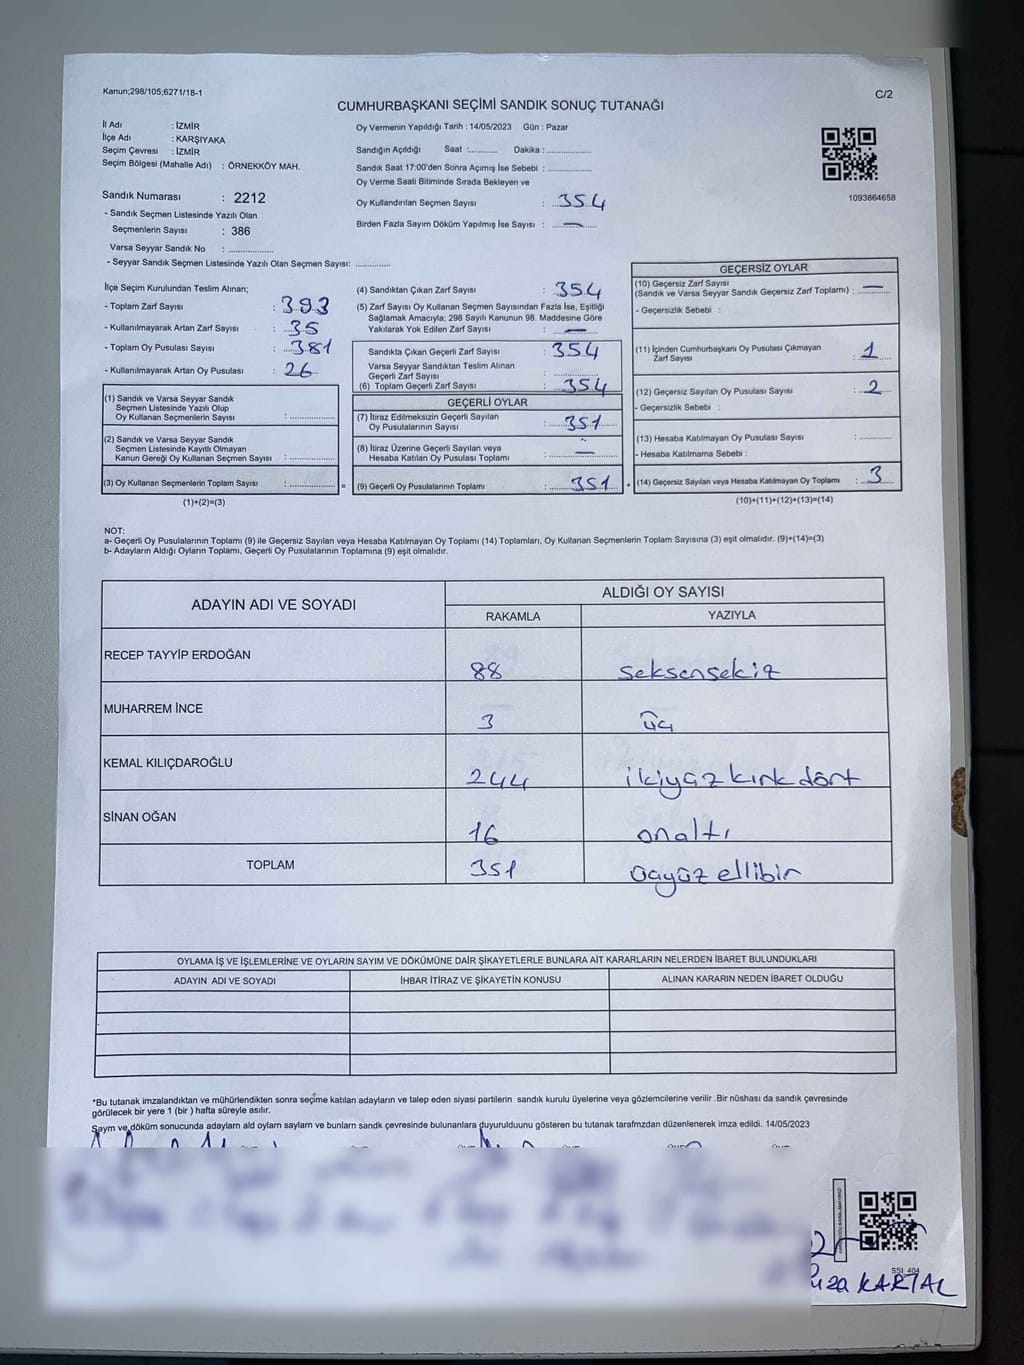 Kanun;298/105;6271/18-1
C/2
CUMHURBAŞKANI SEÇİMİ SANDIK SONUÇ TUTANAĞI
İl Adı : İZMİR
İlçe Adı : KARŞIYAKA
Seçim Çevresi : İZMİR
Seçim Bölgesi (Mahalle Adı) : ÖRNEKKÖY MAH.
Sandık Numarası : 2212
- Sandık Seçmen Listesinde Yazılı Olan
Seçmenlerin Sayısı : 386
Varsa Seyyar Sandık No : ................
- Seyyar Sandık Seçmen Listesinde Yazılı Olan Seçmen Sayısı: ............
Oy Vermenin Yapıldığı Tarih : 14/05/2023 Gün : Pazar
Sandığın Açıldığı Saat :.......... Dakika : ................
Sandık Saat 17:00'den Sonra Açımış İse Sebebi : ................
Oy Verme Saati Bitiminde Sırada Bekleyen ve
Oy Kullandırılan Seçmen Sayısı : 354
Birden Fazla Sayım Döküm Yapılmış İse Sayısı : —
1093864658
İlçe Seçim Kurulundan Teslim Alınan;
- Toplam Zarf Sayısı : 393
- Kullanılmayarak Artan Zarf Sayısı : 35
- Toplam Oy Pusulası Sayısı : 381
- Kullanılmayarak Artan Oy Pusulası : 26
(1) Sandık ve Varsa Seyyar Sandık
Seçmen Listesinde Yazılı Olup
Oy Kullanan Seçmenlerin Sayısı : ................
(2) Sandık ve Varsa Seyyar Sandık
Seçmen Listesinde Kayıtlı Olmayan
Kanun Gereği Oy Kullanan Seçmen Sayısı : ................
(3) Oy Kullanan Seçmenlerin Toplam Sayısı : ................
(1)+(2)=(3)
(4) Sandıktan Çıkan Zarf Sayısı : 354
(5) Zarf Sayısı Oy Kullanan Seçmen Sayısından Fazla İse, Eşitliği
Sağlamak Amacıyla; 298 Sayılı Kanunun 98. Maddesine Göre
Yakılarak Yok Edilen Zarf Sayısı : —
Sandıkta Çıkan Geçerli Zarf Sayısı : 354
Varsa Seyyar Sandıktan Teslim Alınan
Geçerli Zarf Sayısı : ................
(6) Toplam Geçerli Zarf Sayısı : 354
GEÇERLİ OYLAR
(7) İtiraz Edilmeksizin Geçerli Sayılan
Oy Pusulalarının Sayısı : 351
(8) İtiraz Üzerine Geçerli Sayılan veya
Hesaba Katılan Oy Pusulası Toplamı : —
= (9) Geçerli Oy Pusulalarının Toplamı : 351
GEÇERSİZ OYLAR
(10) Geçersiz Zarf Sayısı
(Sandık ve Varsa Seyyar Sandık Geçersiz Zarf Toplamı) : —
- Geçersizlik Sebebi :
(11) İçinden Cumhurbaşkanı Oy Pusulası Çıkmayan
Zarf Sayısı : 1
(12) Geçersiz Sayılan Oy Pusulası Sayısı : 2
- Geçersizlik Sebebi :
(13) Hesaba Katılmayan Oy Pusulası Sayısı : ............
- Hesaba Katılmama Sebebi :
+ (14) Geçersiz Sayılan veya Hesaba Katılmayan Oy Toplamı : 3
(10)+(11)+(12)+(13)=(14)
NOT:
a- Geçerli Oy Pusulalarının Toplamı (9) ile Geçersiz Sayılan veya Hesaba Katılmayan Oy Toplamı (14) Toplamları, Oy Kullanan Seçmenlerin Toplam Sayısına (3) eşit olmalıdır. (9)+(14)=(3)
b- Adayların Aldığı Oyların Toplamı, Geçerli Oy Pusulalarının Toplamına (9) eşit olmalıdır.
ADAYIN ADI VE SOYADI
ALDIĞI OY SAYISI
RAKAMLA YAZIYLA
RECEP TAYYİP ERDOĞAN 88 seksensekiz
MUHARREM İNCE 3 üç
KEMAL KILIÇDAROĞLU 244 ikiyüzkırkdört
SİNAN OĞAN 16 onaltı
TOPLAM 351 üçyüzellibir
OYLAMA İŞ VE İŞLEMLERİNE VE OYLARIN SAYIM VE DÖKÜMÜNE DAİR ŞİKAYETLERLE BUNLARA AİT KARARLARIN NELERDEN İBARET BULUNDUKLARI
ADAYIN ADI VE SOYADI İHBAR İTİRAZ VE ŞİKAYETİN KONUSU ALINAN KARARIN NEDEN İBARET OLDUĞU
*Bu tutanak imzalandıktan ve mühürlendikten sonra seçime katılan adayların ve talep eden siyasi partilerin sandık kurulu üyelerine veya gözlemcilerine verilir .Bir nüshası da sandık çevresinde
görülecek bir yere 1 (bir ) hafta süreyle asılır.
Sayım ve döküm sonucunda adayların ald oyların sayların ve bunların sandk çevresinde bulunanlara duyurulduunu gösteren bu tutanak tarafmzdan düzenlenerek imza edildi. 14/05/2023
SSI_404
KARTAL